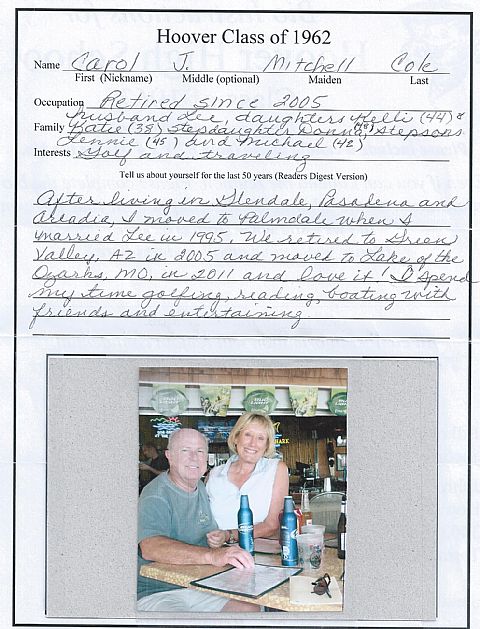 Hoover Class of 1962
Name Carol J. Mitchell Cole
First (Nickname) Middle (optional) Maiden Last
Occupation Retired since 2005
Husband Lee, daughters Kelli (44) &
Family Katie (38) stepdaughter Donna, stepsons
Lennie (45) and Michael (42)
Interests Golf and traveling
Tell us about yourself for the last 50 years (Readers Digest Version)
After living in Glendale, Pasadena and
Arcadia, I moved to Palmdale when I
married Lee in 1995. We retired to Green
Valley, AZ in 2005 and moved to Lake of the
Ozarks, MO, in 2011 and love it! I spend
my time golfing, reading, boating with
friends and entertaining